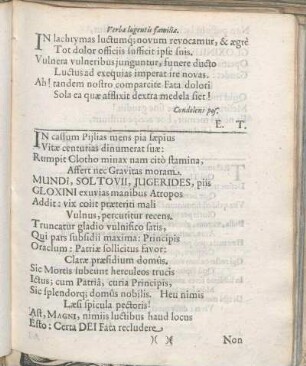 Verba lugentis familiæ.
IN lachrymas luctumq; novum revocamur, & ægrè
Tot dolor officiis sufficit ipse suis.
Vulnera vulneribus junguntur, funere ducto
Luctus ad exequias imperat ire novas.
Ah! tandem nostro comparcite Fata dolori
Sola ea quæ afflixit dextra medela fiet!
Condolens pos.
E. T.
IN cassum Pylias mens pia sæpius
Vitæ centurias dinumerat suæ:
Rumpit Clotho minax nam citò stamina,
Affert nec Gravitas moram.
MUNDI, SOLTOVII, JUGERIDES, piis
GLOXINI exuvias manibus Atropos
Addit: vix coiit præteriti mali
Vulnus, percutitur recens.
Truncatur gladio vulnifico satis,
Qui pars subsidii maxima: Principis
Oraclum: Patriæ sollicitus favor:
Claræ præsidium domûs.
Sic Mortis subeunt herculeos trucis
Ictus; cum Patriâ, curia Principis,
Sic splendorq; domûs nobilis. Heu nimis
Læsi spicula pectoris!
Ast, MAGNI, nimiis luctibus haud locus
Esto: Certa DEI Fata recludere
)( )(
Non